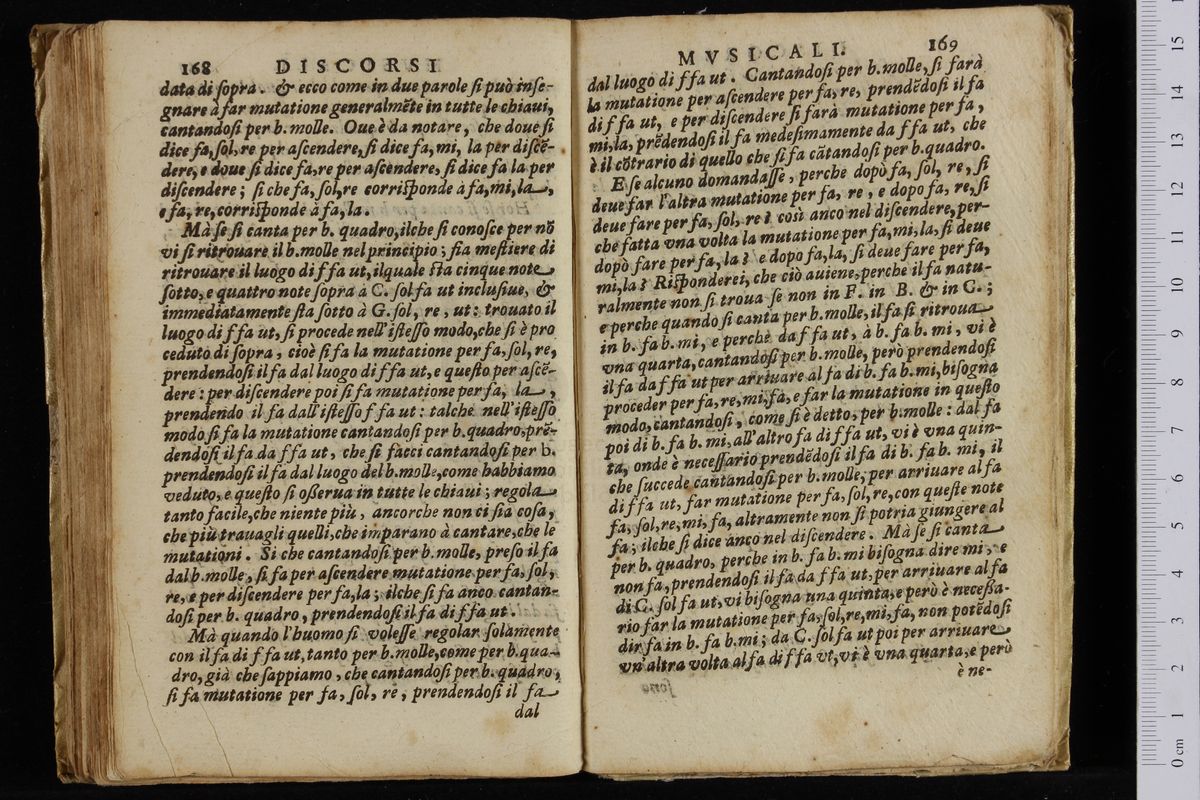 168 DISCORSI
data di ſopra. & ecco come in due parole ſi può inſe-
gnare à far mutatione generalmẽte in tutte le chiaui,
cantandoſi per b. molle. Oue è da notare, che doue ſi
dice fa, ſol, re per aſcendere, ſi dice fa, mi, la per diſcẽ-
dere, e doue ſi dice fa, re per aſcendere, ſi dice fa la per
diſcendere; ſi che fa, ſol, re corriſponde à fa, mi, la,
e fa, re, corriſponde à fa, la.
Mà ſe ſi canta per b. quadro, ilche ſi conoſce per nõ
vi ſi ritrouare il b. molle nel principio; fia meſtiere di
ritrouare il luogo di f fa ut, ilquale ſta cinque note
ſotto, e quattro note ſopra à C. ſol fa ut incluſiue, &
immediatamente ſta ſotto à G. ſol, re, ut: trouato il
luogo di f fa ut, ſi procede nell'iſteſſo modo, che ſi è pro
ceduto di ſopra, cioè ſi fa la mutatione per fa, ſol, re,
prendendoſi il fa dal luogo di f fa ut, e queſto per aſcẽ-
dere: per diſcendere poi ſi fa mutatione per fa, la,
prendendo il fa dall'iſteſſo f fa ut: talche nell'iſteſſo
modo ſi fa la mutatione cantandoſi per b. quadro, prẽ-
dendoſi il fa da f fa ut, che ſi facci cantandoſi per b.
prendendoſi il fa dal luogo del b. molle, come habbiamo
veduto, e queſto ſi oſſerua in tutte le chiaui; regola
tanto facile, che niente più, ancorche non ci ſia coſa,
che più trauagli quelli, che imparano à cantare, che le
mutationi. Si che cantandoſi per b. molle, preſo il fa
dal b. molle, ſi fa per aſcendere mutatione per fa, ſol,
re, e per diſcendere per fa, la; ilche ſi fa anco cantan-
doſi per b. quadro, prendendoſi il fa di f fa ut.
Mà quando l'huomo ſi voleſſe regolar ſolamente
con il fa di f fa ut, tanto per b. molle, come per b. qua-
dro, già che ſappiamo, che cantandoſi per b. quadro,
ſi fa mutatione per fa, ſol, re, prendendoſi il fa
dal
MVSICALI. 169
dal luogo di f fa ut. Cantandoſi per b. molle, ſi farà
la mutatione per aſcendere per fa, re, prendẽdoſi il fa
di f fa ut, e per diſcendere ſi farà mutatione per fa,
mi, la, prẽdendoſi il fa medeſimamente da f fa ut, che
è il cõtrario di quello che ſi fa cãtandoſi per b. quadro.
E ſe alcuno domandaſſe, perche dopò fa, ſol, re, ſi
deue far l'altra mutatione per fa, re, e dopo fa, re, ſi
deue fare per fa, ſol, re? così anco nel diſcendere, per-
che fatta vna volta la mutatione per fa, mi, la, ſi deue
dopò fare per fa, la? e dopo fa, la, ſi deue fare per fa,
mi, la? Riſponderei, che ciò auiene, perche il fa natu-
ralmente non ſi troua ſe non in F. in B. & in C.;
e perche quando ſi canta per b. molle, il fa ſi ritroua
in b. fa b. mi, e perche da f fa ut, à b. fa b. mi, vi è
vna quarta, cantandoſi per b. molle, però prendendoſi
il fa da f fa ut per arriuare al fa di b. fa b. mi, biſogna
proceder per fa, re, mi, fa, e far la mutatione in queſto
modo, cantandoſi, come ſi è detto, per b. molle: dal fa
poi di b. fa b. mi, all'altro fa di f fa ut, vi è vna quin-
ta, onde è neceſſario prendẽdoſi il fa di b. fa b. mi, il
che ſuccede cantandoſi per b. molle, per arriuare al fa
di f fa ut, far mutatione per fa, ſol, re, con queſte note
fa, ſol, re, mi, fa, altramente non ſi potria giungere al
fa; ilche ſi dice anco nel diſcendere. Mà ſe ſi canta
per b. quadro, perche in b. fa b. mi biſogna dire mi, e
non fa, prendendoſi il fa da f fa ut, per arriuare al fa
di C. ſol fa ut, vi biſogna una quinta, e però è neceſſa-
rio far la mutatione per fa, ſol, re, mi, fa, non potẽdoſi
dir fa in b. fa b. mi; da C. ſol fa ut poi per arriuare
vn'altra volta al fa di f fa vt, vi è vna quarta, e però
è ne-